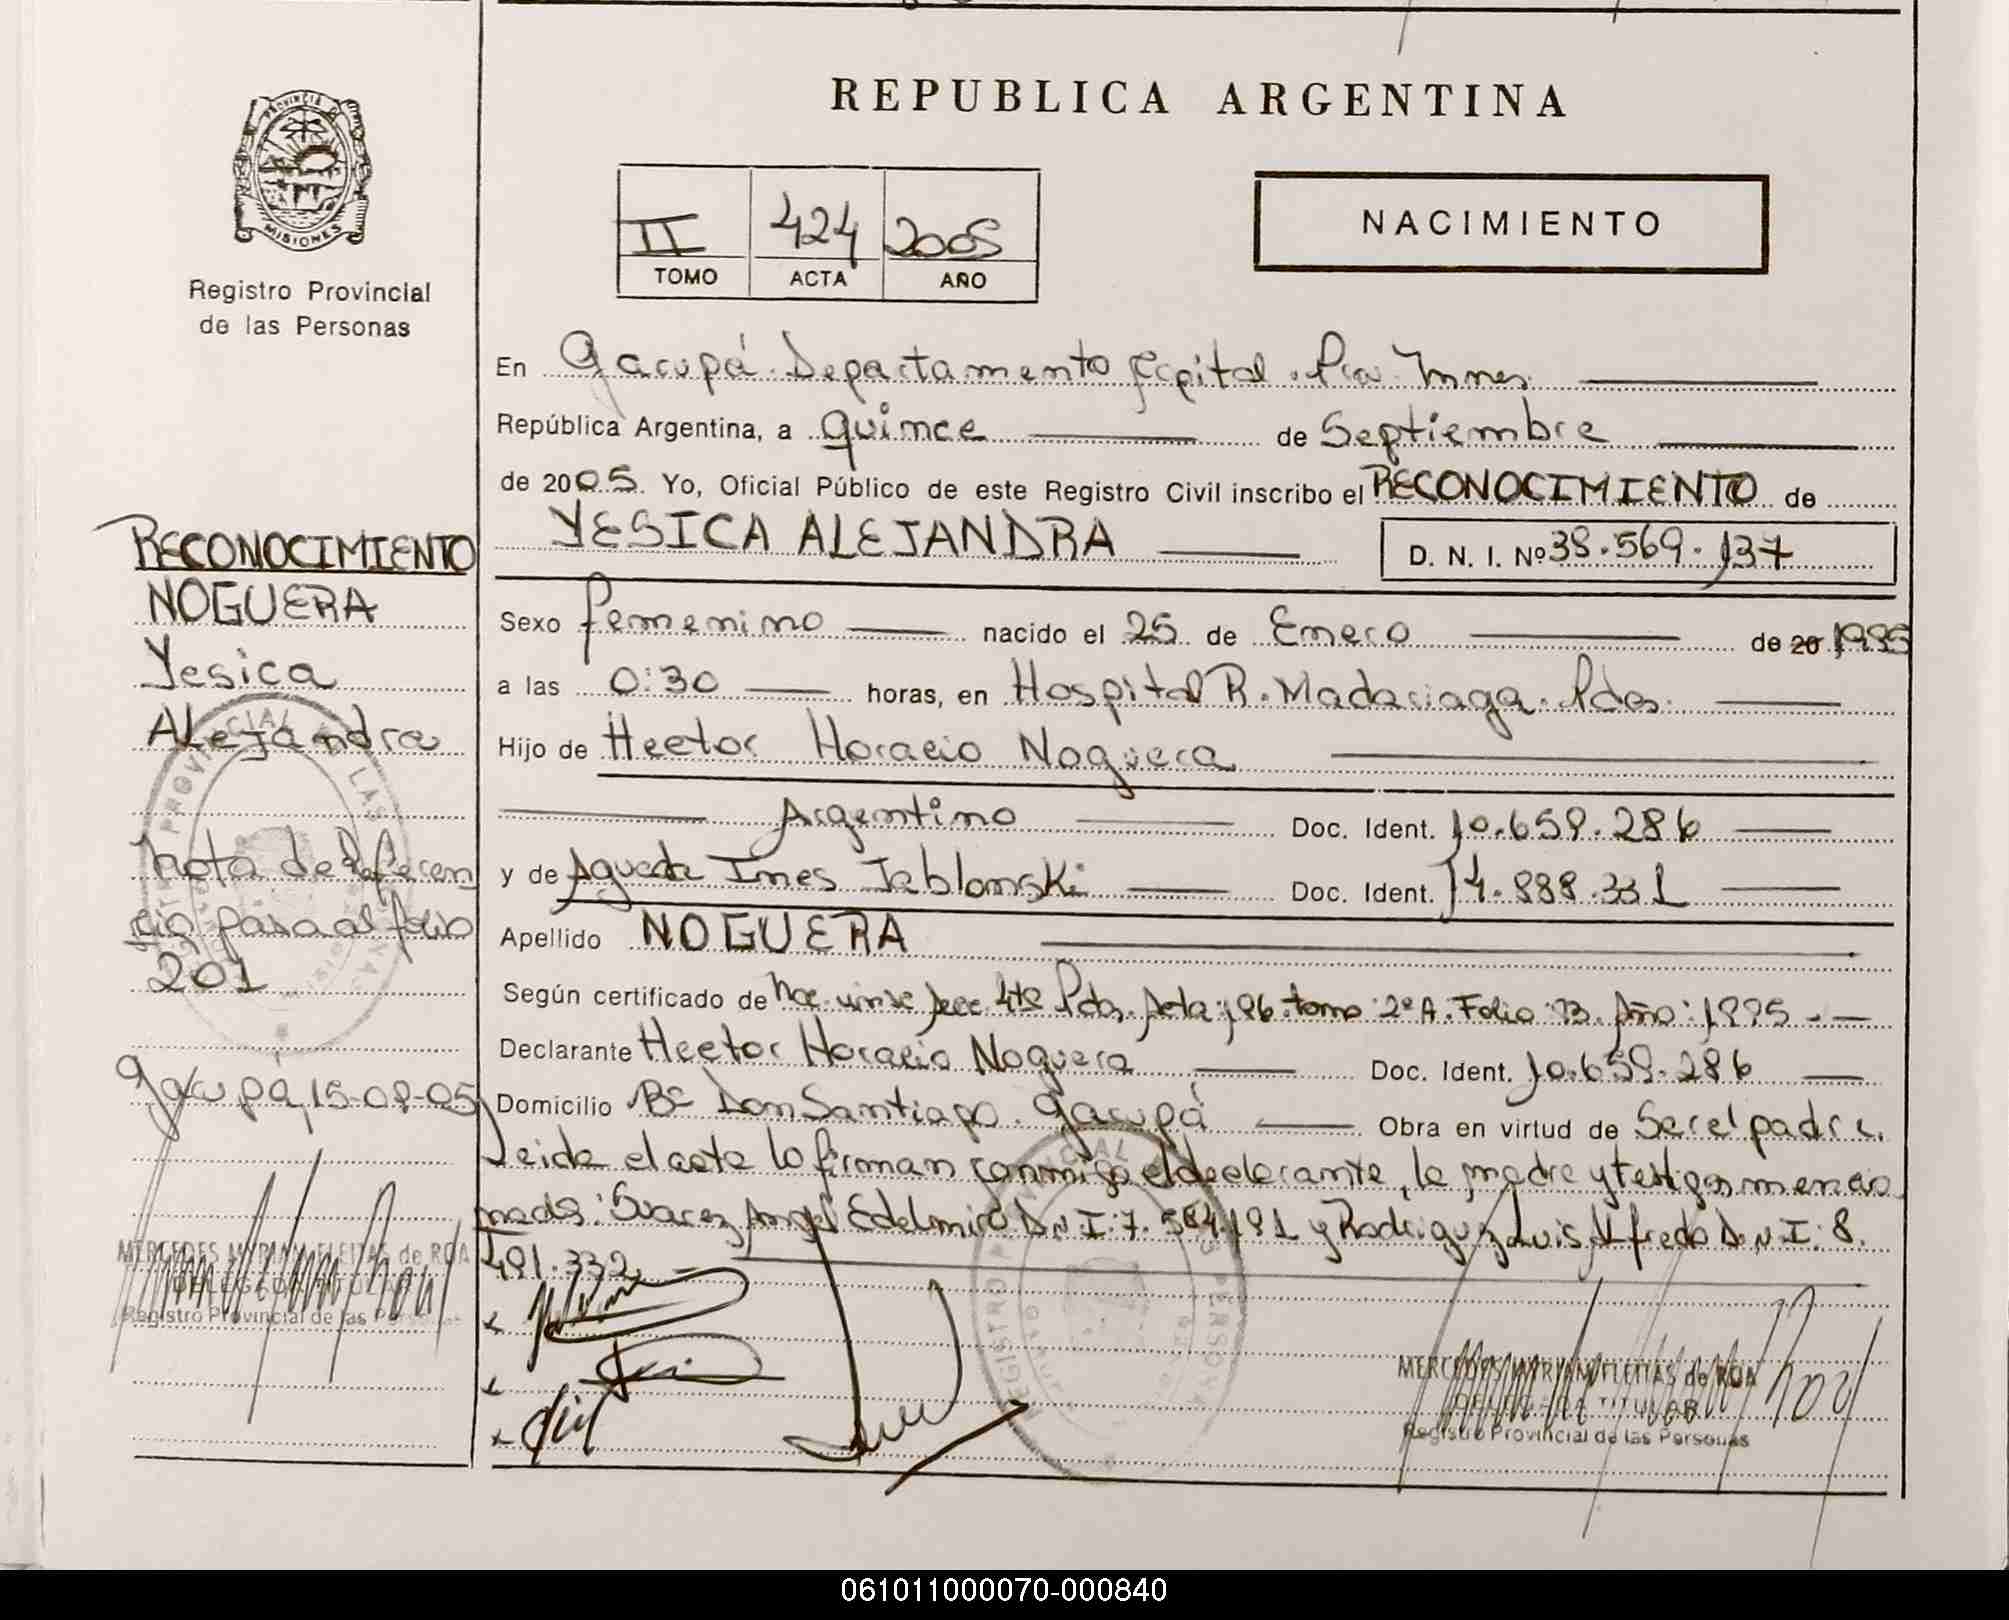 REPUBLICA ARGENTINA
PROVINCIA DE
MISIONES
Registro Provincial
de las Personas
II 424 2005
TOMO ACTA AÑO
NACIMIENTO
En Garupá. Departamento Capital. Pcia. Mnes.
República Argentina, a quince de Septiembre
de 2005. Yo, Oficial Público de este Registro Civil inscribo el RECONOCIMIENTO de
YESICA ALEJANDRA D. N. I. Nº 38.569.137
Sexo femenino nacido el 25 de Enero de 20 1995
a las 0:30 horas, en Hospital R. Madariaga. Pdas.
Hijo de Hector Horacio Noguera
Argentino Doc. Ident. 10.659.286
y de Agueda Ines Jablonski Doc. Ident. 14.888.331
Apellido NOGUERA
Según certificado de Nac. 4ta Pdas. Acta: 196. tomo: 2º A. Folio: 73. Año: 1995
Declarante Hector Horacio Noguera Doc. Ident. 10.659.286
Domicilio Bº Don Santiago. Garupá Obra en virtud de Ser el padre.
Leida el acta lo firman conmigo el declarante, la madre y testigos mencio
nads: Suarez Angel Edelmiro D.N.I: 7.584.191 y Rodriguez Luis Alfredo D.N.I: 8.
491.332
MERCEDES MYRIAM FLEITAS de ROA
DELEGADA TITULAR
Registro Provincial de las Personas
RECONOCIMIENTO
NOGUERA
Yesica
Alejandra
Nota de Referen
cia pasa al folio
201
Garupá, 15-09-05
MERCEDES MYRIAM FLEITAS de ROA
DELEGADA TITULAR
Registro Provincial de las Personas
061011000070-000840